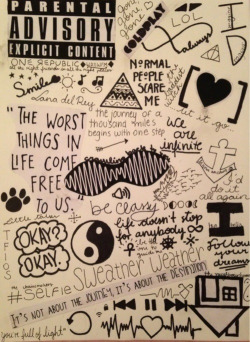 PARENTAL
ADVISORY
EXPLICIT CONTENT
COLDPLAY
LOL
always
ONE REPUBLIC
Smile
NORMAL
PEOPLE
SCARE
ME
Lana del Rey
the journey of a
thousand miles
begins with one step
let it go
"THE WORST
THINGS IN
LIFE COME
FREE
TO US.
we
are
infinite
I'd
do it
all
again
little talks
be classy
TFIOS
OKAY?
OKAY.
life doesn't stop
for anybody
Follow
your
dreams
#SELFIE
SWEATHER WEATHER
IT'S NOT ABOUT THE JOURNEY, IT'S ABOUT THE DESTINATION
you're full of light